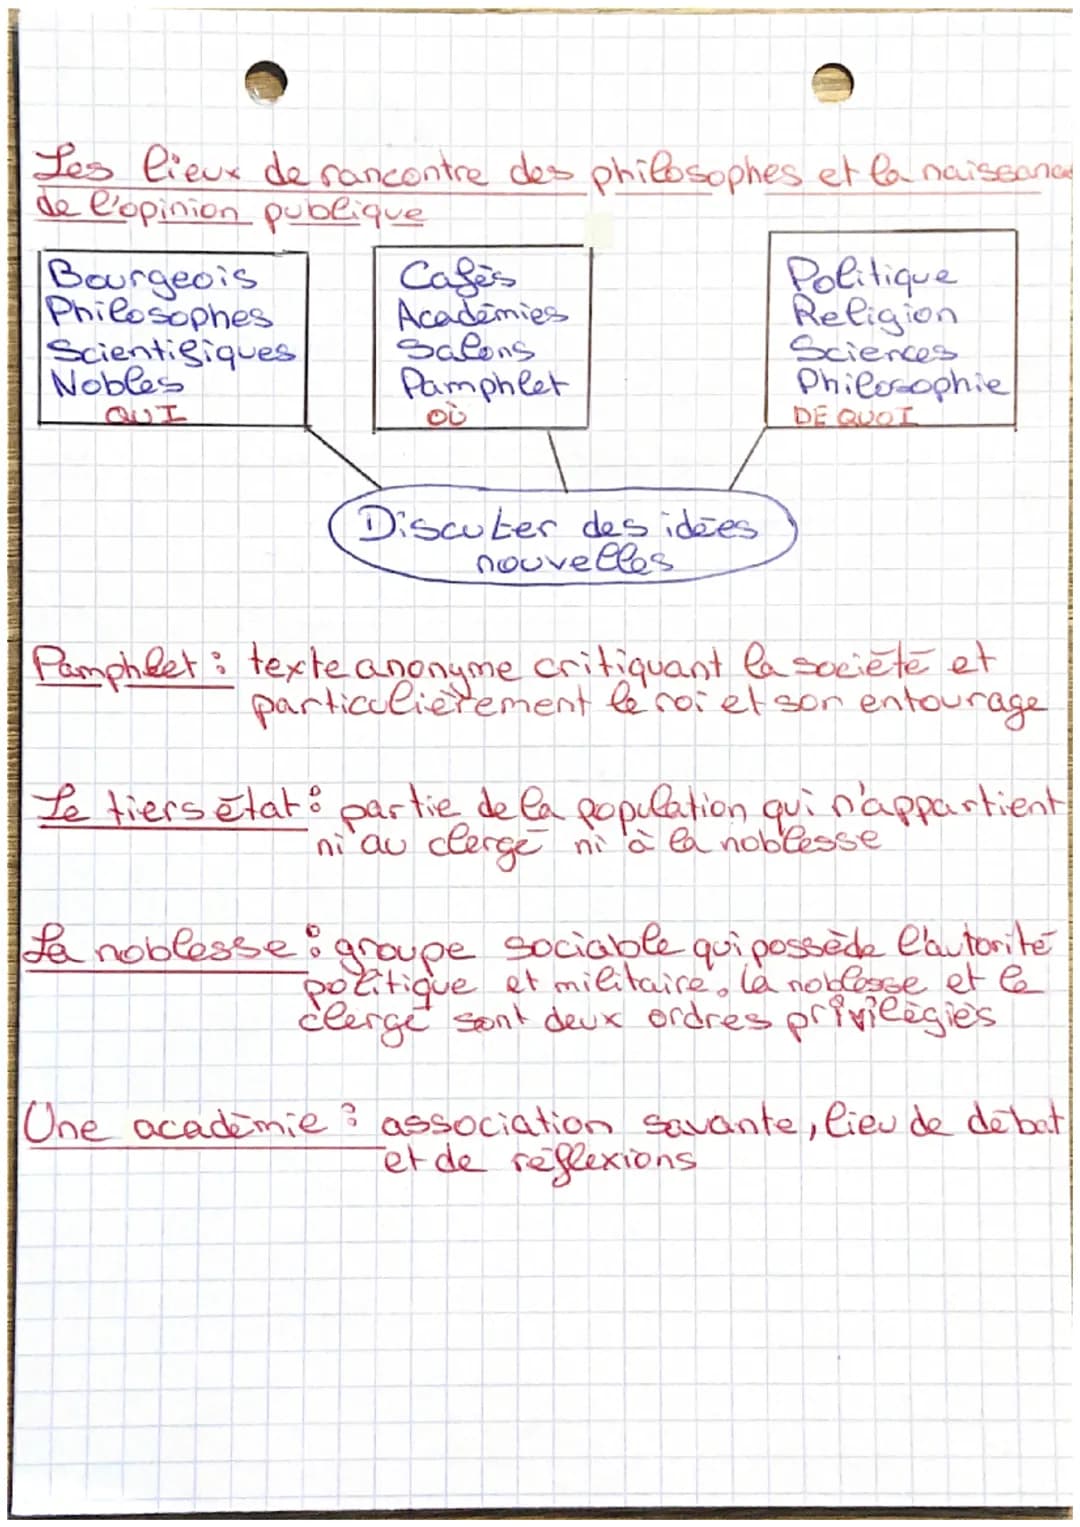 Les lieux de rancontre des philosophes et la naissance
de l'opinion publique
Bourgeois
Philosophes
Scientifiques
Nobles
QUI
Cafés
Académies
Salons
Pamphlet
OÙ
Politique
Religion
Sciences
Philosophie
DE QUOI
Discuter des idées
nouvelles
Pamphlet : texte anonyme critiquant la société et
particulièrement le roi et son entourage
Le tiers état : partie de la population qui n'appartient
ni au clergé ni à la noblesse
La noblesse : groupe sociable qui possède l'autorité
politique et militaire. la noblesse et le
clergé sont deux ordres privilégiés
Une académie : association savante, lieu de débat
et de réflexions